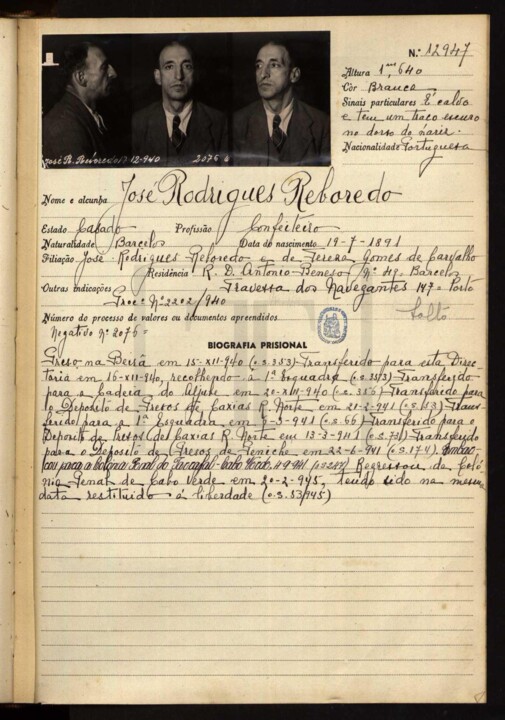 N.º 12947
José R. Reboredo 17-12-940 2076
Altura 1,ᵐ640
Côr Branca
Sinais particulares É calvo
e tem um traço escuro
no dorso do nariz.
Nacionalidade Portuguesa
Nome e alcunha José Rodrigues Reboredo
Estado Casado Profissão Confeiteiro
Naturalidade Barcelos Data do nascimento 19-7-1891
Filiação José Rodrigues Reboredo e de Tereza Gomes de Carvalho
Residência R. D. Antonio Nº 49= Barcelos
Outras indicações Travessa dos Navegantes 147= Porto
Proc. Nº 2202/940 Solto
Número do processo de valores ou documentos apreendidos
Negativo Nº 2076=
BIOGRAFIA PRISIONAL
Preso na em 15-XII-940 (o.s.353) Transferido para esta Direc-
toria em 16-XII-940, recolhendo á 1ª Esquadra (o.s.353) Transferido
para a Cadeia do Aljube em 20-XII-940 (o.s.356) Transferido para
o Deposito de Presos de Caxias R. Norte em 21-2-941 (o.s.53) Trans-
ferido para a 1ª Esquadra em 6-3-941 (o.s.66) Transferido para o
Deposito de Presos de Caxias R. Norte em 13-3-941 (o.s.73) Transferido
para o Deposito de Presos de Peniche em 22-6-941 (o.s.174). Embar-
cou para a Colonia Penal do Tarrafal-Cabo Verde, 4-9-941 Regressou da Coló-
nia Penal de Cabo Verde em 20-2-945, tendo sido na mesma
data restituido á liberdade (o.s.53/945)